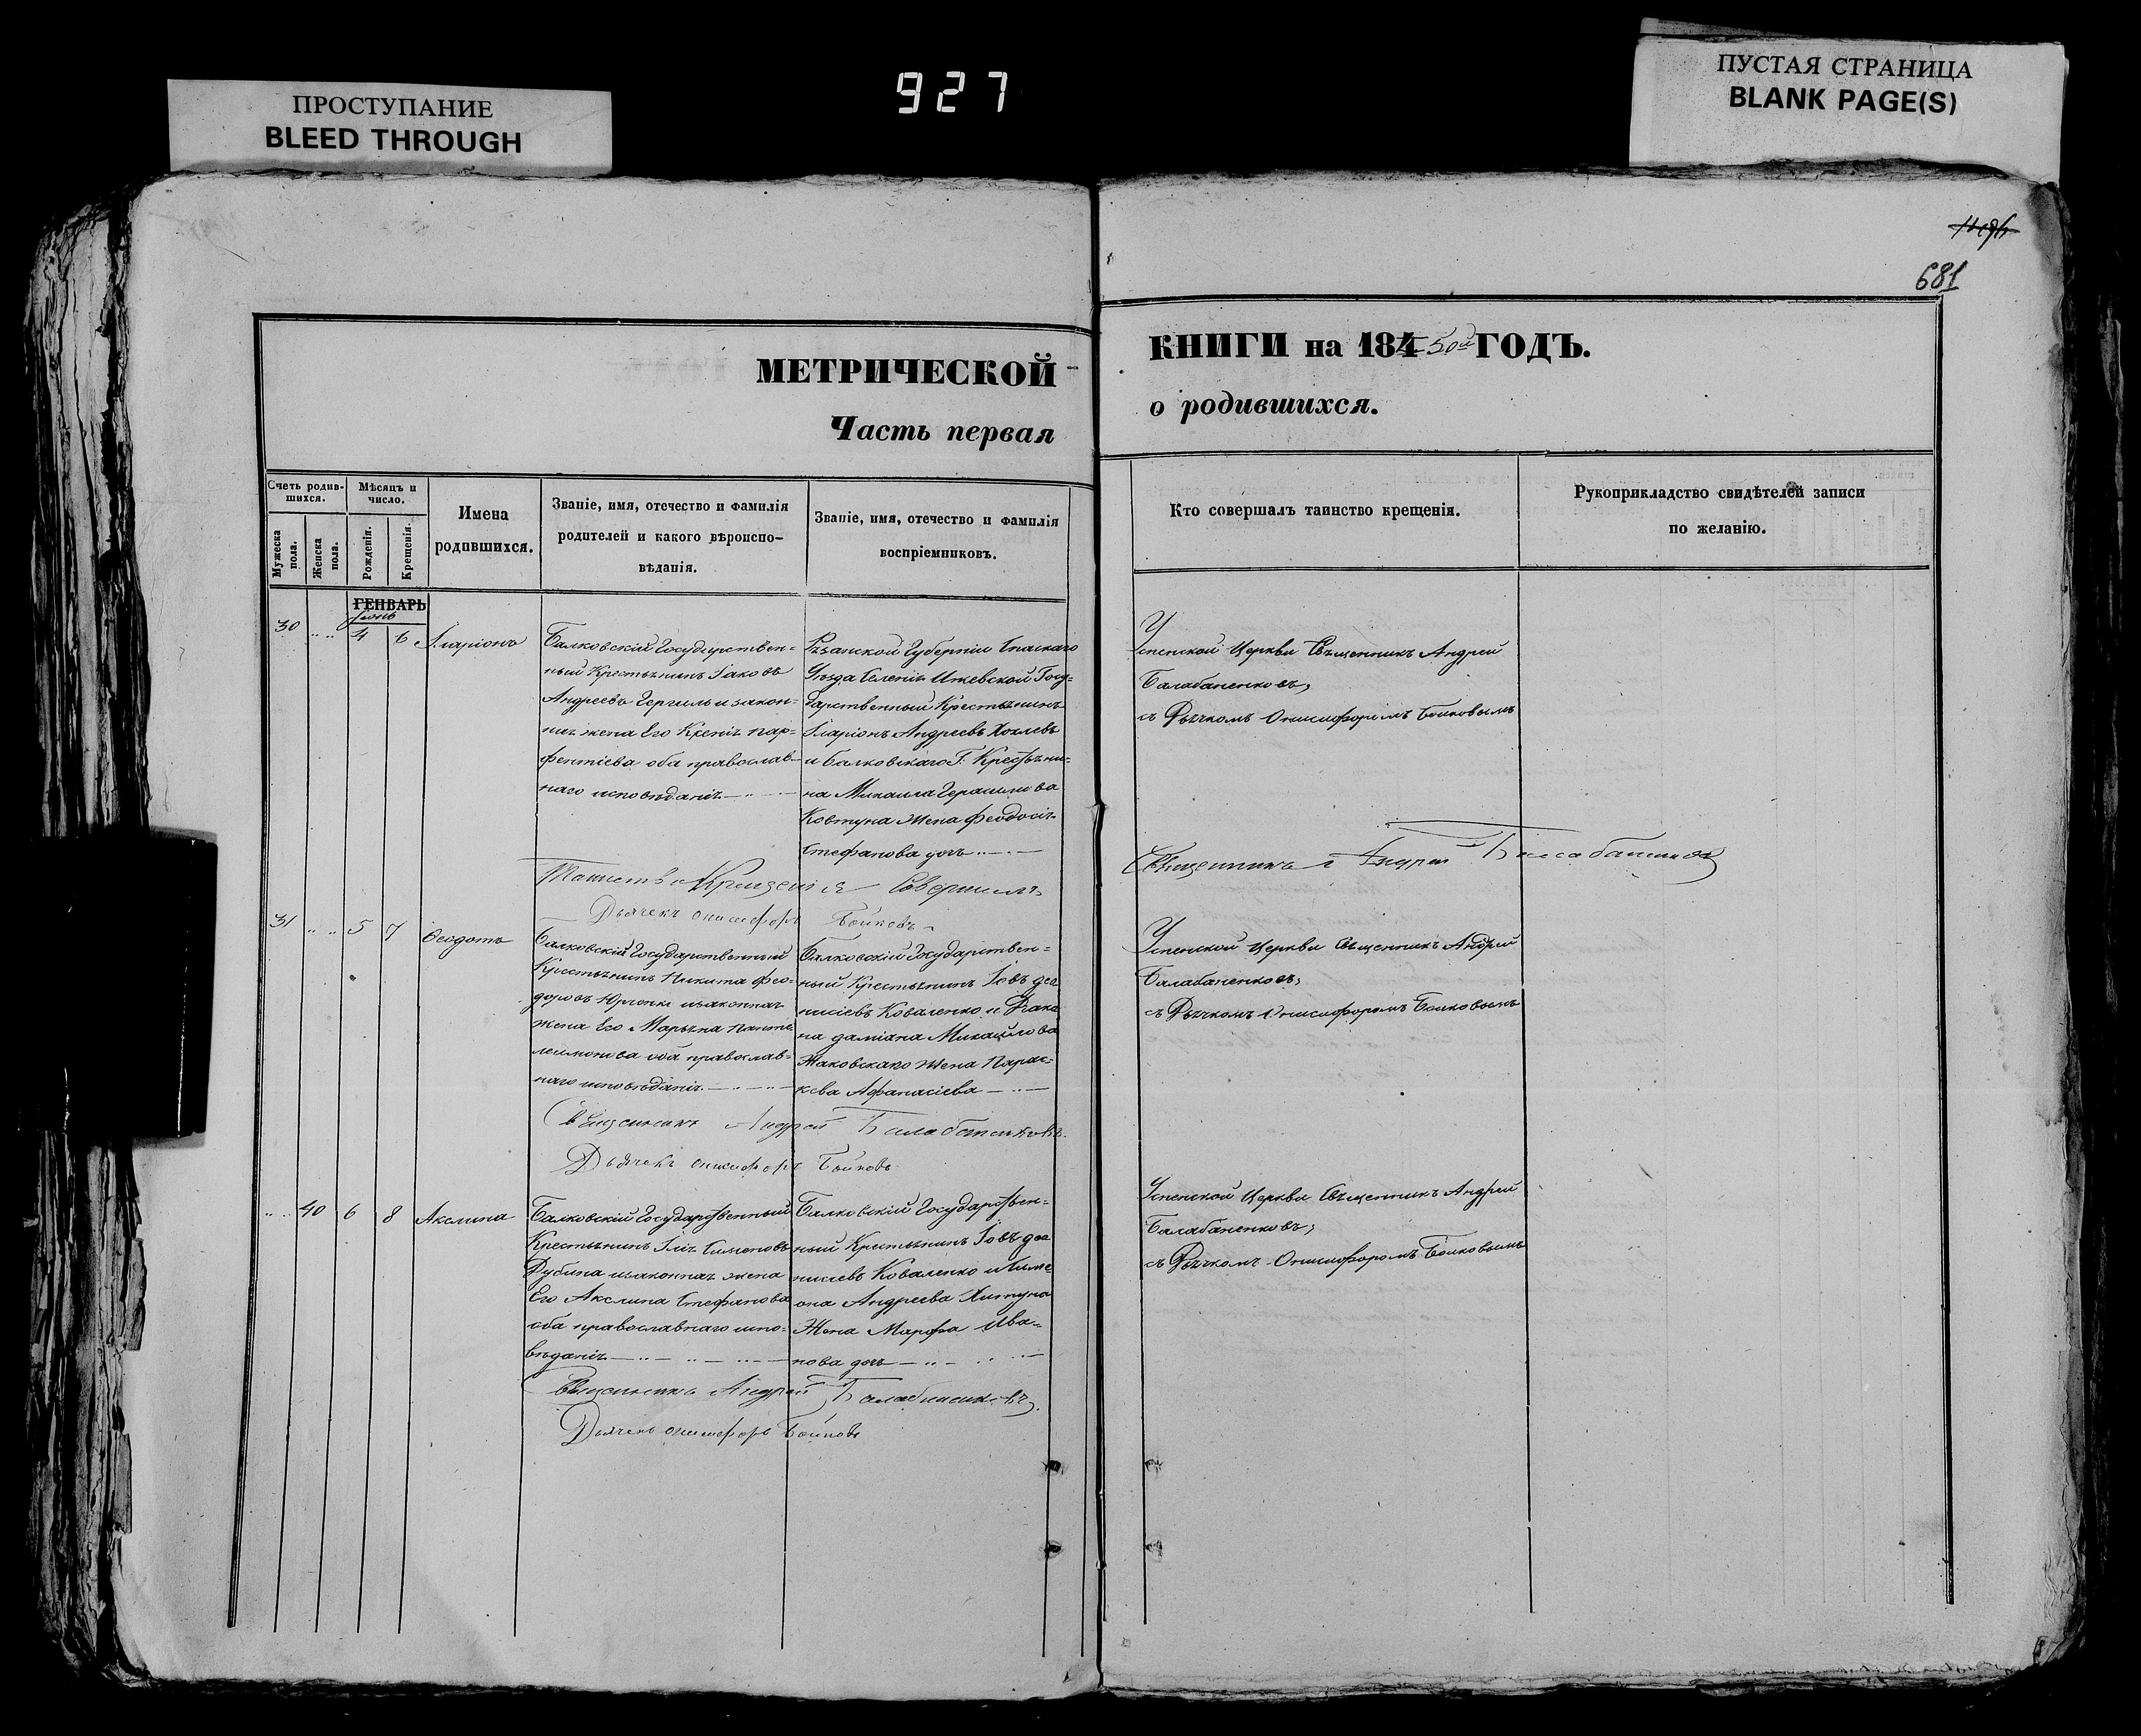 ПРОСТУПАНИЕ
BLEED THROUGH
927
ПУСТАЯ СТРАНИЦА
BLANK PAGE(S)
681
МЕТРИЧЕСКОЙ
Часть первая
КНИГИ на 184 50й ГОДЪ.
о родившихся.
Счетъ родив-
шихся.
Мужеска
пола.
Женска
пола.
Мѣсяцъ и
число.
Рожденія.
Крещенія.
Имена
родившихся.
Званіе, имя, отечество и фамилія
родителей и какого вѣроиспо-
вѣданія.
Званіе, имя, отечество и фамилія
воспріемниковъ.
Кто совершалъ таинство крещенія.
Рукоприкладство свидѣтелей записи
по желанію.
ГЕНВАРЬ
30 " " 4 6 Іларіонъ
Балковскій Государствен=
ный Крестьянинъ Іаковъ
Андреевъ и закон=
ная жена Его Ксенія Пар=
фентіева оба православ-
наго исповѣданія
Рязанской Губерніи Спаскаго
Уѣзда Селенія Ижевской Госу=
дарственный Крестьянинъ
Іларіонъ Андреевъ Хохлевъ
и балковскаго Г. Крестьяни=
на Михаила Герасимова
Ковтуна жена Феодосія
Стефанова дочь
Успенской Церкви Священникъ Андрей
Балабаненковъ,
съ Дьячкомъ Онисифоромъ Бойковымъ
Таинство Крещенія Совершилъ
Священникъ Андрей Балабаненковъ
Дьячекъ Онисифоръ Бойковъ
31 " " 5 7 Феодотъ
Балковскій Государственный
Крестьянинъ Никита Фео=
доровъ и законная
жена Его Марьяна Панте
леимонова оба православ=
наго исповѣданія
Балковскій Государствен=
ный Крестьянинъ Іовъ Део
нисіевъ Коваленко и Дьяко
на Даміана Михайлова
Жаковскаго жена Парас=
кева Афанасіева
Успенской Церкви Священникъ Андрей
Балабаненковъ,
съ Дьячкомъ Онисифоромъ Бойковымъ
Священникъ Андрей Балабаненковъ
Дьячекъ Онисифоръ Бойковъ
" " 40 6 8 Аксинья
Балковскій Государственный
Крестьянинъ Ілія Симеоновъ
Дубина и законная жена
Его Аксинья Стефанова
оба православнаго испо-
вѣданія
Балковскій Государствен=
ный Крестьянинъ Іовъ Део
нисіевъ Коваленко и Симе
она Андреева Хитуна
Жена Марфа Ива-
нова дочь
Успенской Церкви Священникъ Андрей
Балабаненковъ,
съ Дьячкомъ Онисифоромъ Бойковымъ
Священникъ Андрей Балабаненковъ
Дьячекъ Онисифоръ Бойковъ